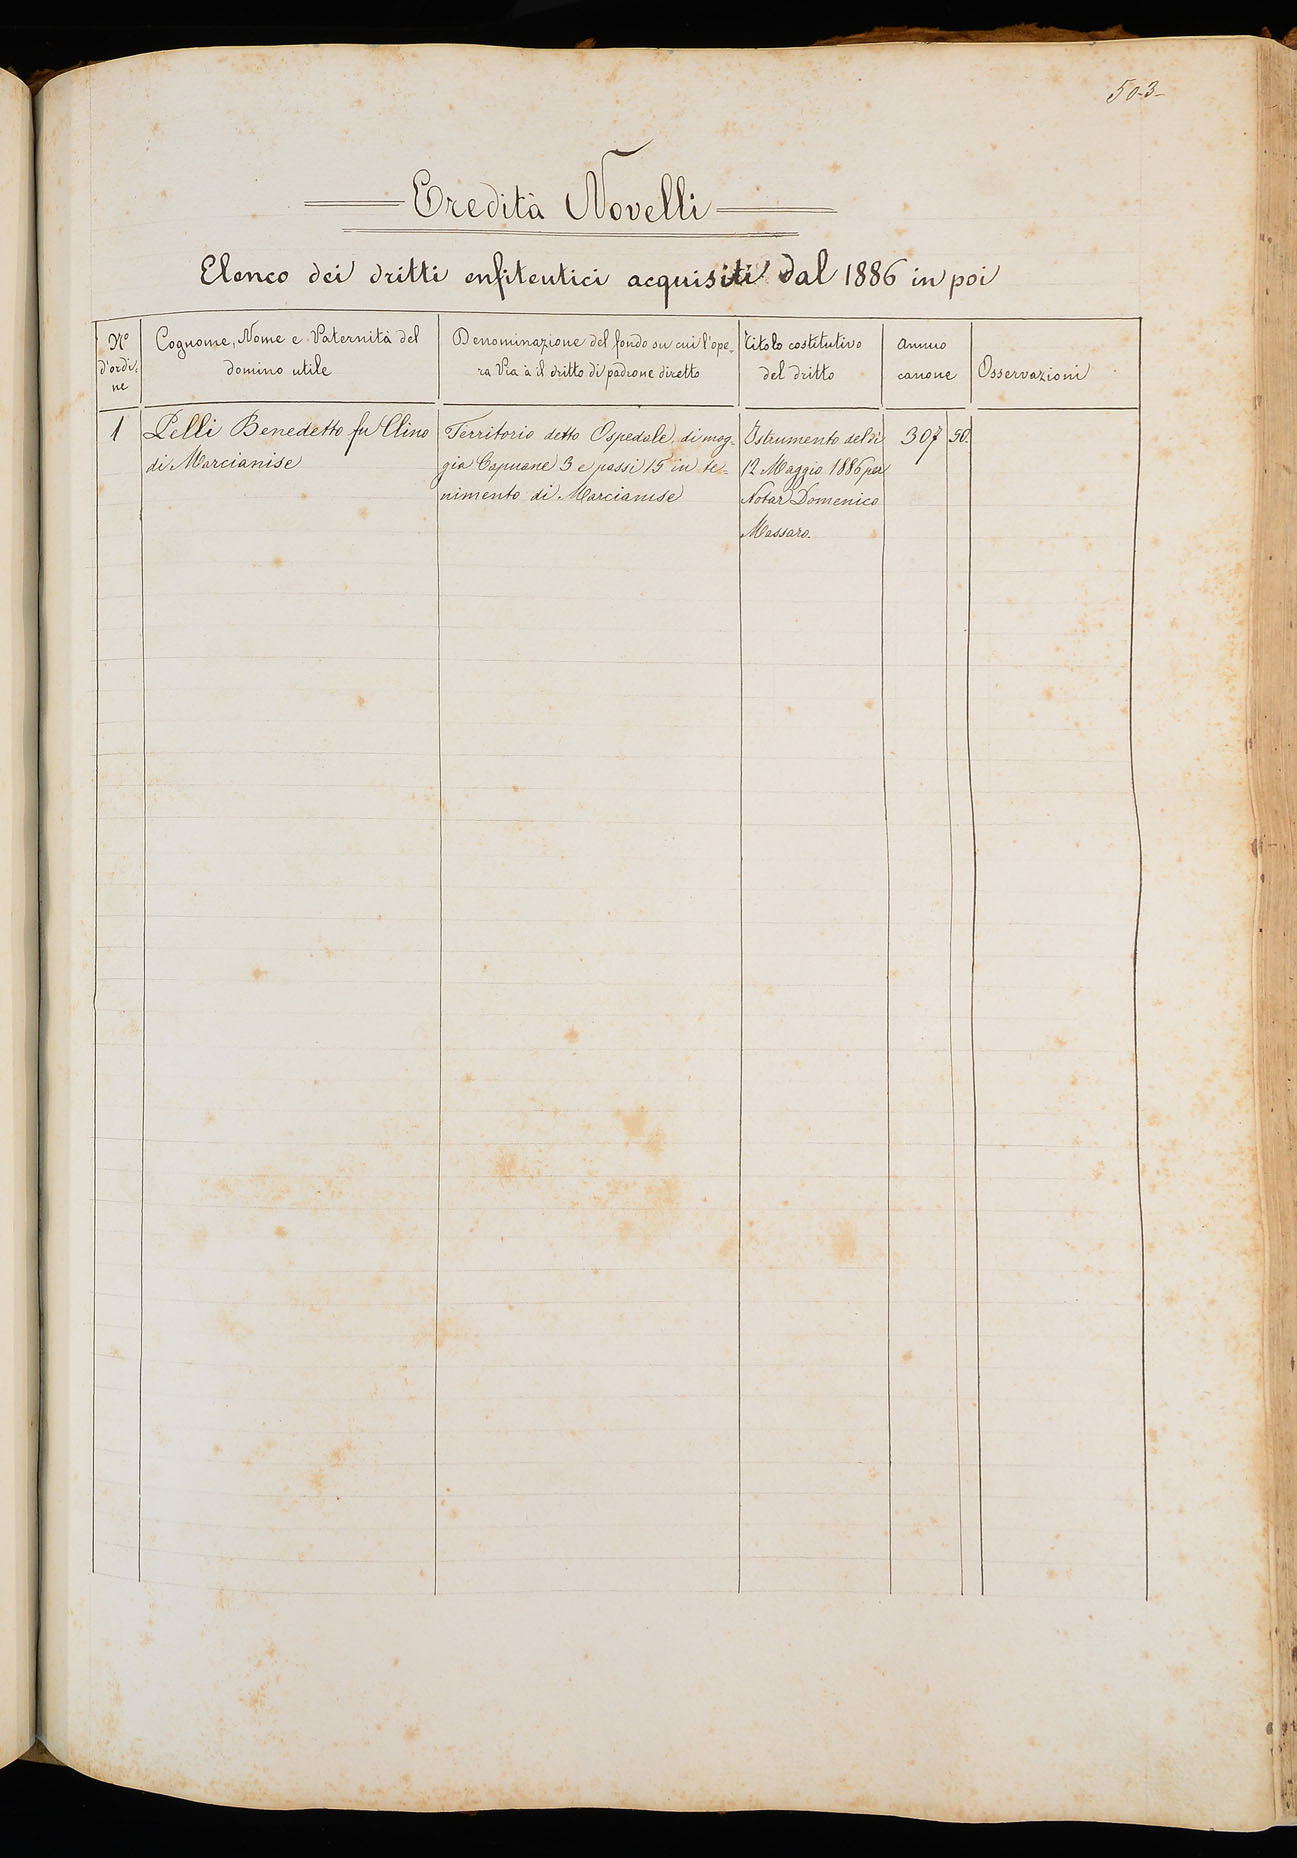 503
Eredità Novelli
Elenco dei dritti enfiteutici acquisiti dal 1886 in poi
Nº d'ordine
Cognome, Nome e Paternità del
domino utile
Denominazione del fondo su cui l'ope-
ra Pia à il dritto di padrone diretto
Titolo costitutivo
del dritto
annuo
canone
Osservazioni
1
Benedetto fu
di Marcianise
Territorio detto Ospedale, di mog-
gia Capuane 3 e passi 15 in te-
nimento di Marcianise
Istrumento del dì
12 Maggio 1886 per
Notar Domenico
Massaro.
307 50.